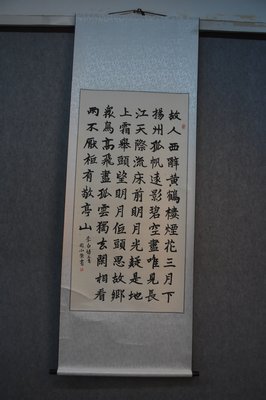 故人西辭黃鶴樓煙花三月下
揚州孤帆遠影碧空盡唯見長
江天際流床前明月光疑是地
上霜舉頭望明月低頭思故鄉
衆鳥高飛盡孤雲獨去閑相看
兩不厭祗有敬亭山
李白詩三首